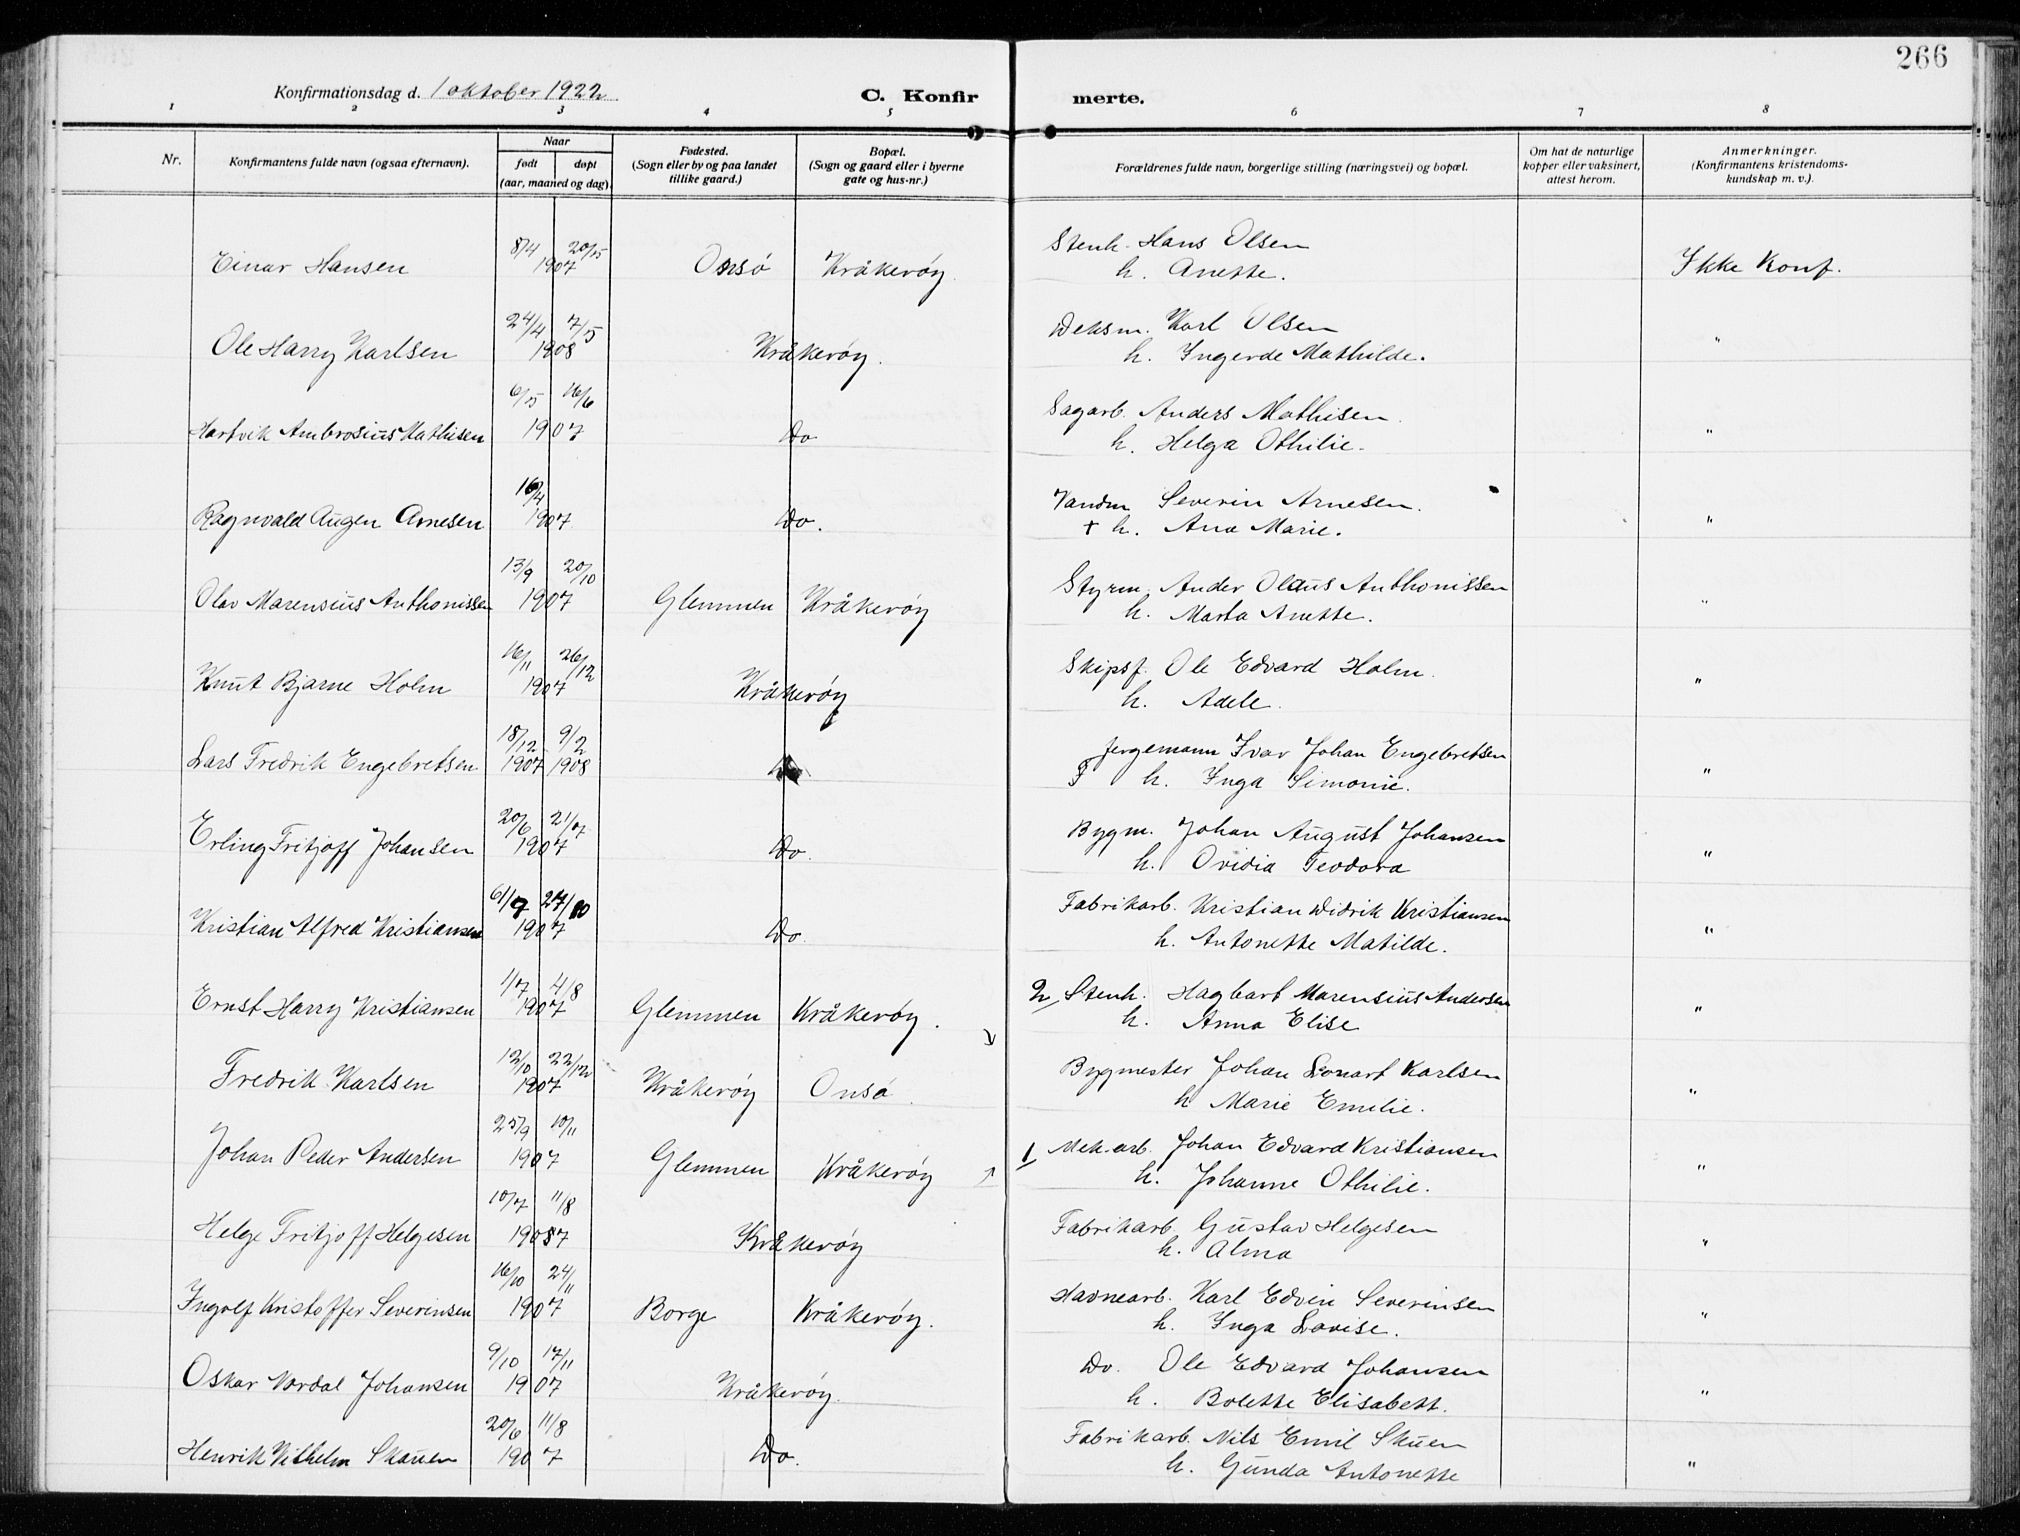 266
Konfirmationsdag d. 1 oktober 1922
C. Konfir merte.
1 2 3 4 5 6 7 8
Nr.
Konfirmantens fulde navn (ogsaa efternavn).
Naar
født døpt
(aar, maaned og dag).
Fødested.
(Sogn eller by og paa landet
tillike gaard.)
Bopæl.
(Sogn og gaard eller i byerne
gate og hus-nr.)
Forældrenes fulde navn, borgerlige stilling (næringsvei) og bopæl.
Om hat de naturlige
kopper eller vaksinert,
attest herom.
Anmerkninger.
(Konfirmantens kristendoms-
kundskap m. v.).
8/4 20/5 Stenh. Hans Olsen
Einar Hansen 1907 Onsö Kråkerøy. h. Anette. Ikke Konf.
24/4 7/5 Weksm. Karl Olsen
Ole Harry Karlsen 1908 Kråkerøy. h. Ingerde Mathilde. "
6/5 16/6 Sagarb. Anders Mathisen.
Hartvik Ambrosius Mathisen 1907 Do h. Helga Othilie. "
16/4 Vandm Severin Arnesen.
Ragnvald Augen Arnesen 1907 Do. + h. Ana Marie. "
13/9 20/10 Styrm. Ander Olaus Anthonissen
Olav Marensius Anthonissen 1907 Glemmen Kråkerøy h. Marta Anette. "
16/11 26/12 Skipsf. Ole Edvard Holm.
Knut Bjarne Holm 1907 Kråkerøy h. Adele. "
18/12 9/2 Fergemann Ivar Johan Engebretsen
Lars Fredrik Engebretsen 1907 1908 Do h. Inga Simonie. "
20/6 21/7 Bygm. Johan August Johansen
Erling Fritjoff Johansen 1907 Do. h. Ovidia Teodora "
6/9 27/10 Fabrikarb. Kristian Didrik Kristiansen
Kristian Alfred Kristiansen 1907 Do. h. Antonette Matilde. "
1/7 4/8 2 Stenh. Hagbart Marensius Andersen
Ernst Harry Kristiansen 1907 Glemmen Kråkerøy. h. Anna Elise "
12/10 22/12 Bygmester Johan Leonart Karlsen
Fredrik Karlsen 1907 Kråkerøy Onsø. h Marie Emilie. "
25/9 10/11 1 Mek.arb. Johan Edvard Kristiansen
Johan Peder Andersen 1907 Glemmen Kråkerøy h. Johanne Othilie. "
10/7 11/8 Fabrikarb. Gustav Helgesen
Helge Fritjoff Helgesen 1907 Kråkerøy h. Alma "
16/10 24/11 Havnearb. Karl Edvin Severinsen
Ingolf Kristoffer Severinsen 1907 Borge Kråkerøy. h. Inga Lovise. "
9/10 17/11 Do. Ole Edvard Johansen
Oskar Nordal Johansen 1907 Kråkerøy. h. Bolette Elisabett. "
20/6 11/8 Fabrikarb. Nils Emil Skuen
Henrik Vilhelm Skauen 1907 Do. h. Gunda Antonette "